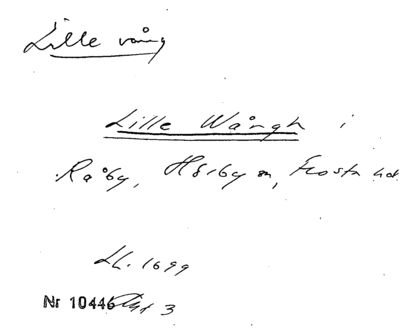 Lille vång
Lille Wångh i
Råby, Hörby sn, Frosta hd.
LL. 1699
Nr 10446 Akt 3